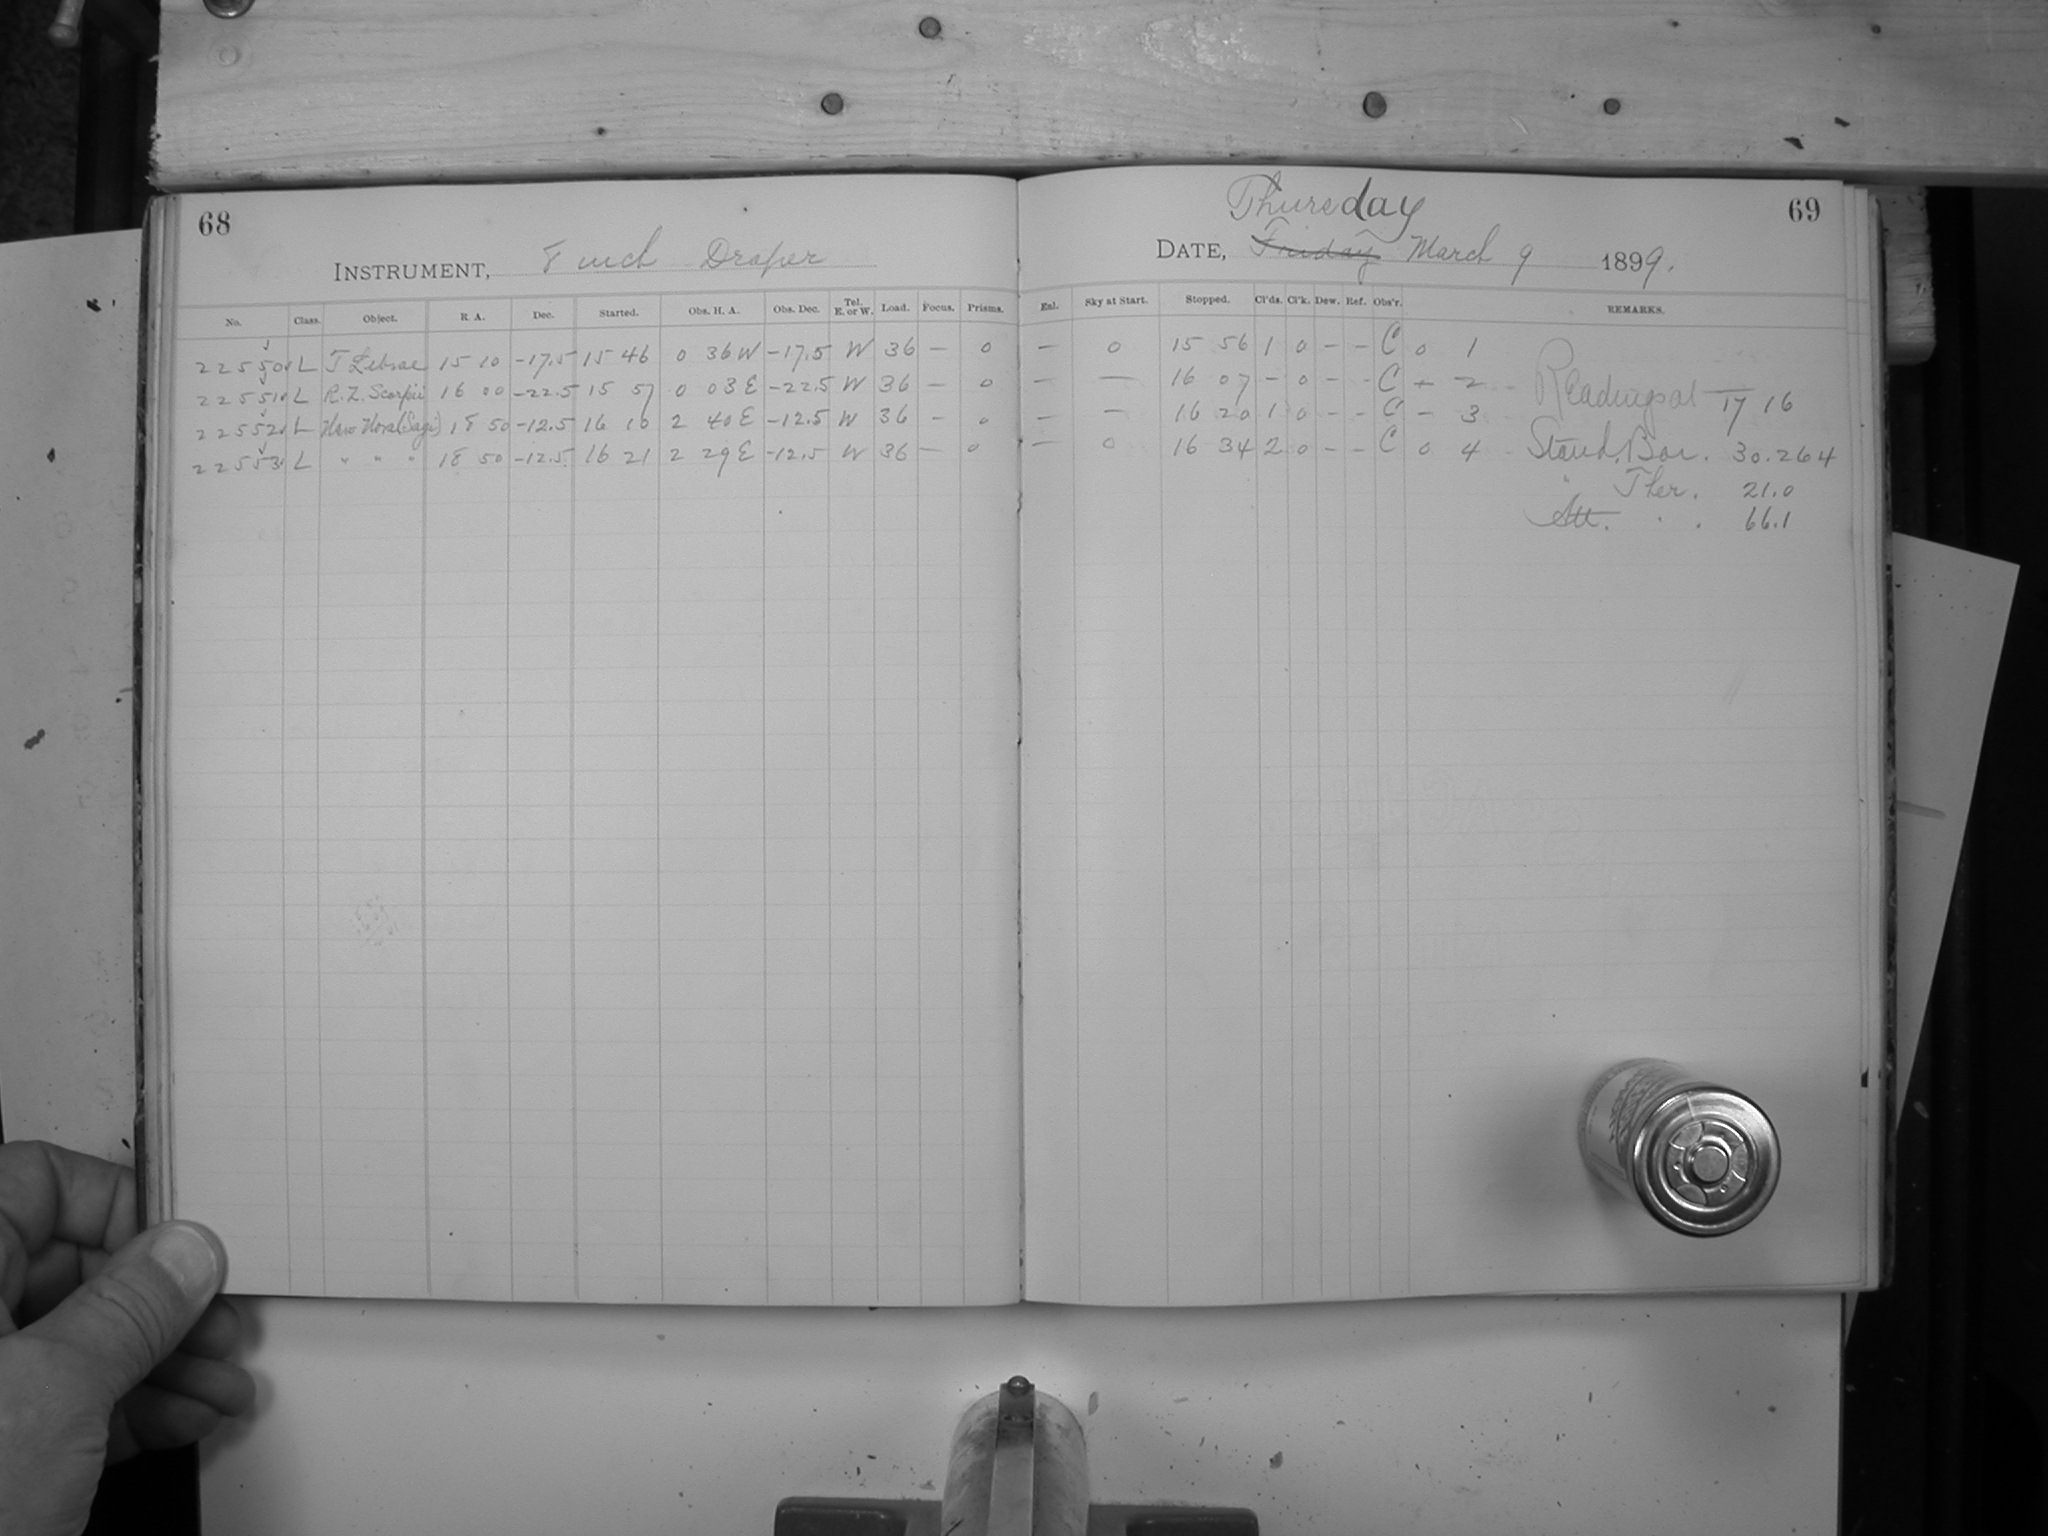 68
INSTRUMENT, 8 inch Draper
No. Class. Object. R. A. Dec. Started. Obs. H. A. Obs. Dec. Tel. E. or W. Load. Focus. Prisms.
22550 L T Librae 15 10 -17.5 15 46 0 36 W -17.5 W 36 — 0
22551 L R.Z. Scorpii 16 00 -22.5 15 57 0 03 E -22.5 W 36 — 0
22552 L New Nova (Sagi) 18 50 -12.5 16 10 2 40 E -12.5 W 36 — 0
22553 L " " " 18 50 -12.5 16 21 2 29 E -12.5 W 36 — 0
69
Thursday
DATE, Friday March 9 1899.
Enl. Sky at Start. Stopped. Cl'ds. Cl'k. Dew. Ref. Obs'r. REMARKS.
— 0 15 56 1 0 - - C 0 1
— — 16 07 - 0 - - C + 2 Readings at 17 16
— — 16 20 1 0 - - C - 3
— 0 16 34 2 0 - - C 0 4 Stand. Bar. 30.264
" Ther. 21.0
Att. " " 66.1